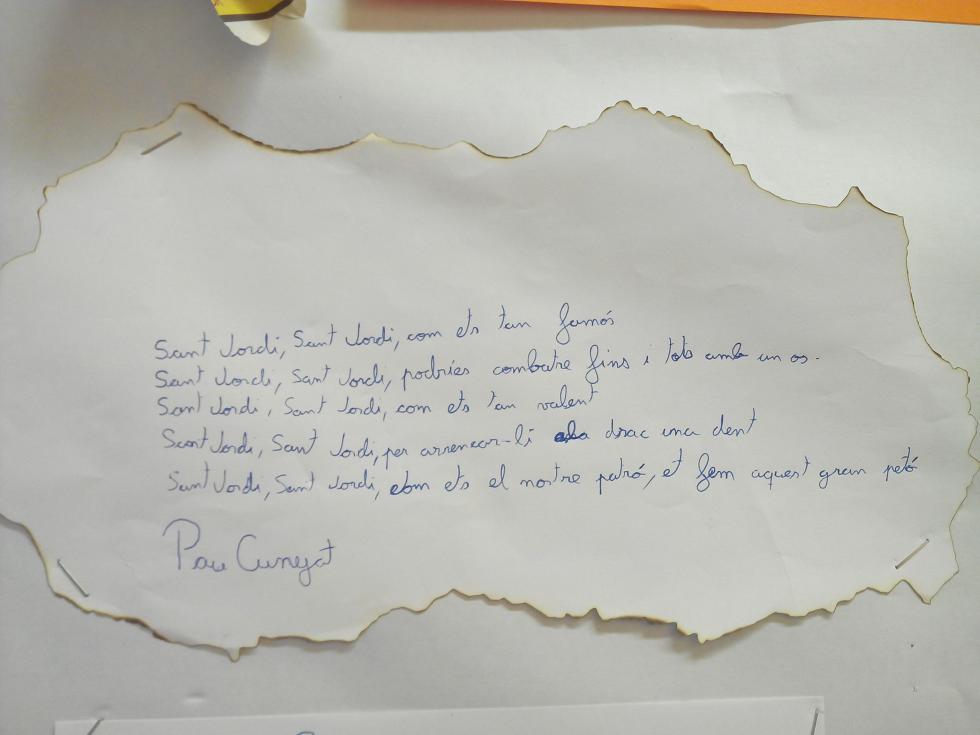 Sant Jordi, Sant Jordi, com ets tan famós
Sant Jordi, Sant Jordi, podries combatre fins i tots amb un os.
Sant Jordi, Sant Jordi, com ets tan valent
Sant Jordi, Sant Jordi, per arrencar-li drac una dent
Sant Jordi, Sant Jordi, com ets el nostre patró, et fem aquest gran petó
Pau